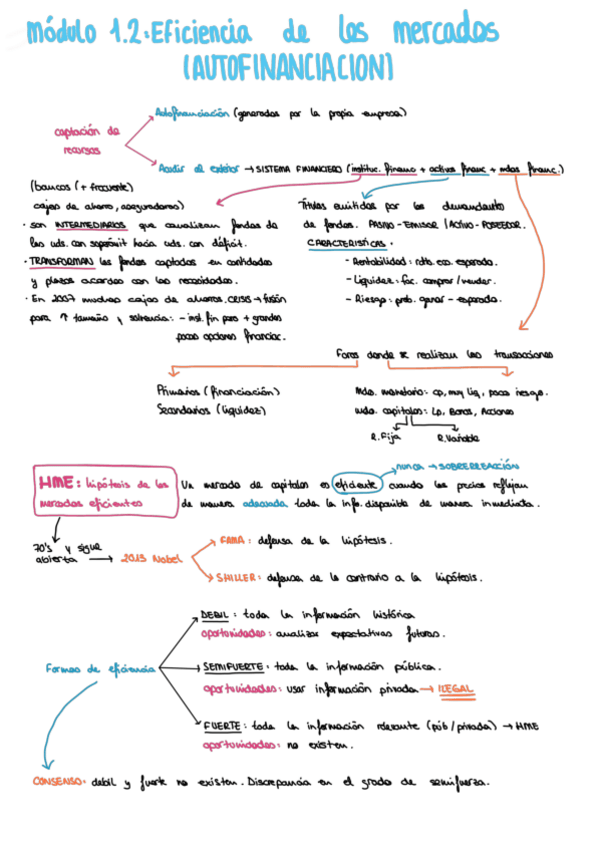 módulo 1.2: Eficiencia de los mercados
(AUTOFINANCIACION)
Autofinanciación (generados por la propia empresa)
captación de
recursos
Acudir al exterior → SISTEMA FINANCIERO (instituc. financ + activos financ + mdos financ.)
(bancos (+ frecuente)
cajas de ahorro, aseguradoras)
· son INTERMEDIARIOS que canalizan fondos de
las uds. con superávit hacia uds. con déficit.
· TRANSFORMAN los fondos captados en cantidades
y plazos acordes con las necesidades.
· En 2007 muchas cajas de ahorros. CRISIS → fusión
para ↑ tamaño y solvencia: - inst. fin pero + grandes
pocas opciones financiac.
Títulos emitidos por los demandantes
de fondos. PASIVO - EMISOR / ACTIVO - POSEEDOR.
CARACTERISTICAS.
- Rentabilidad: rdto. eco. esperado.
- Liquidez: fac. comprar / vender.
- Riesgo: prob. ganar - esperado.
Foros donde se realizan las transacciones
Primarios (financiación)
Secundarios (liquidez)
Mdo. monetario: cp, muy liq, poco riesgo.
mdo. capitales: Lp, Bonos, Acciones
R. Fija R. Variable
nunca → SOBRERREACCIÓN
HME: hipótesis de los
mercados eficientes
Un mercado de capitales es eficiente cuando los precios reflejan
de manera adecuada toda la info. disponible de manera inmediata.
70's y sigue
abierta → 2013 Nobel
FAMA: defensa de la hipótesis.
SHILLER: defensa de lo contrario a la hipótesis.
DEBIL: toda la información histórica
oportunidades: analizar expectativas futuras.
Formas de eficiencia
SEMIFUERTE: toda la información pública.
oportunidades: usar información privada → ILEGAL
FUERTE: toda la información relevante (púb / privada) → HME
oportunidades: no existen.
CONSENSO: debil y fuerte no existen. Discrepancia en el grado de semifuerza.